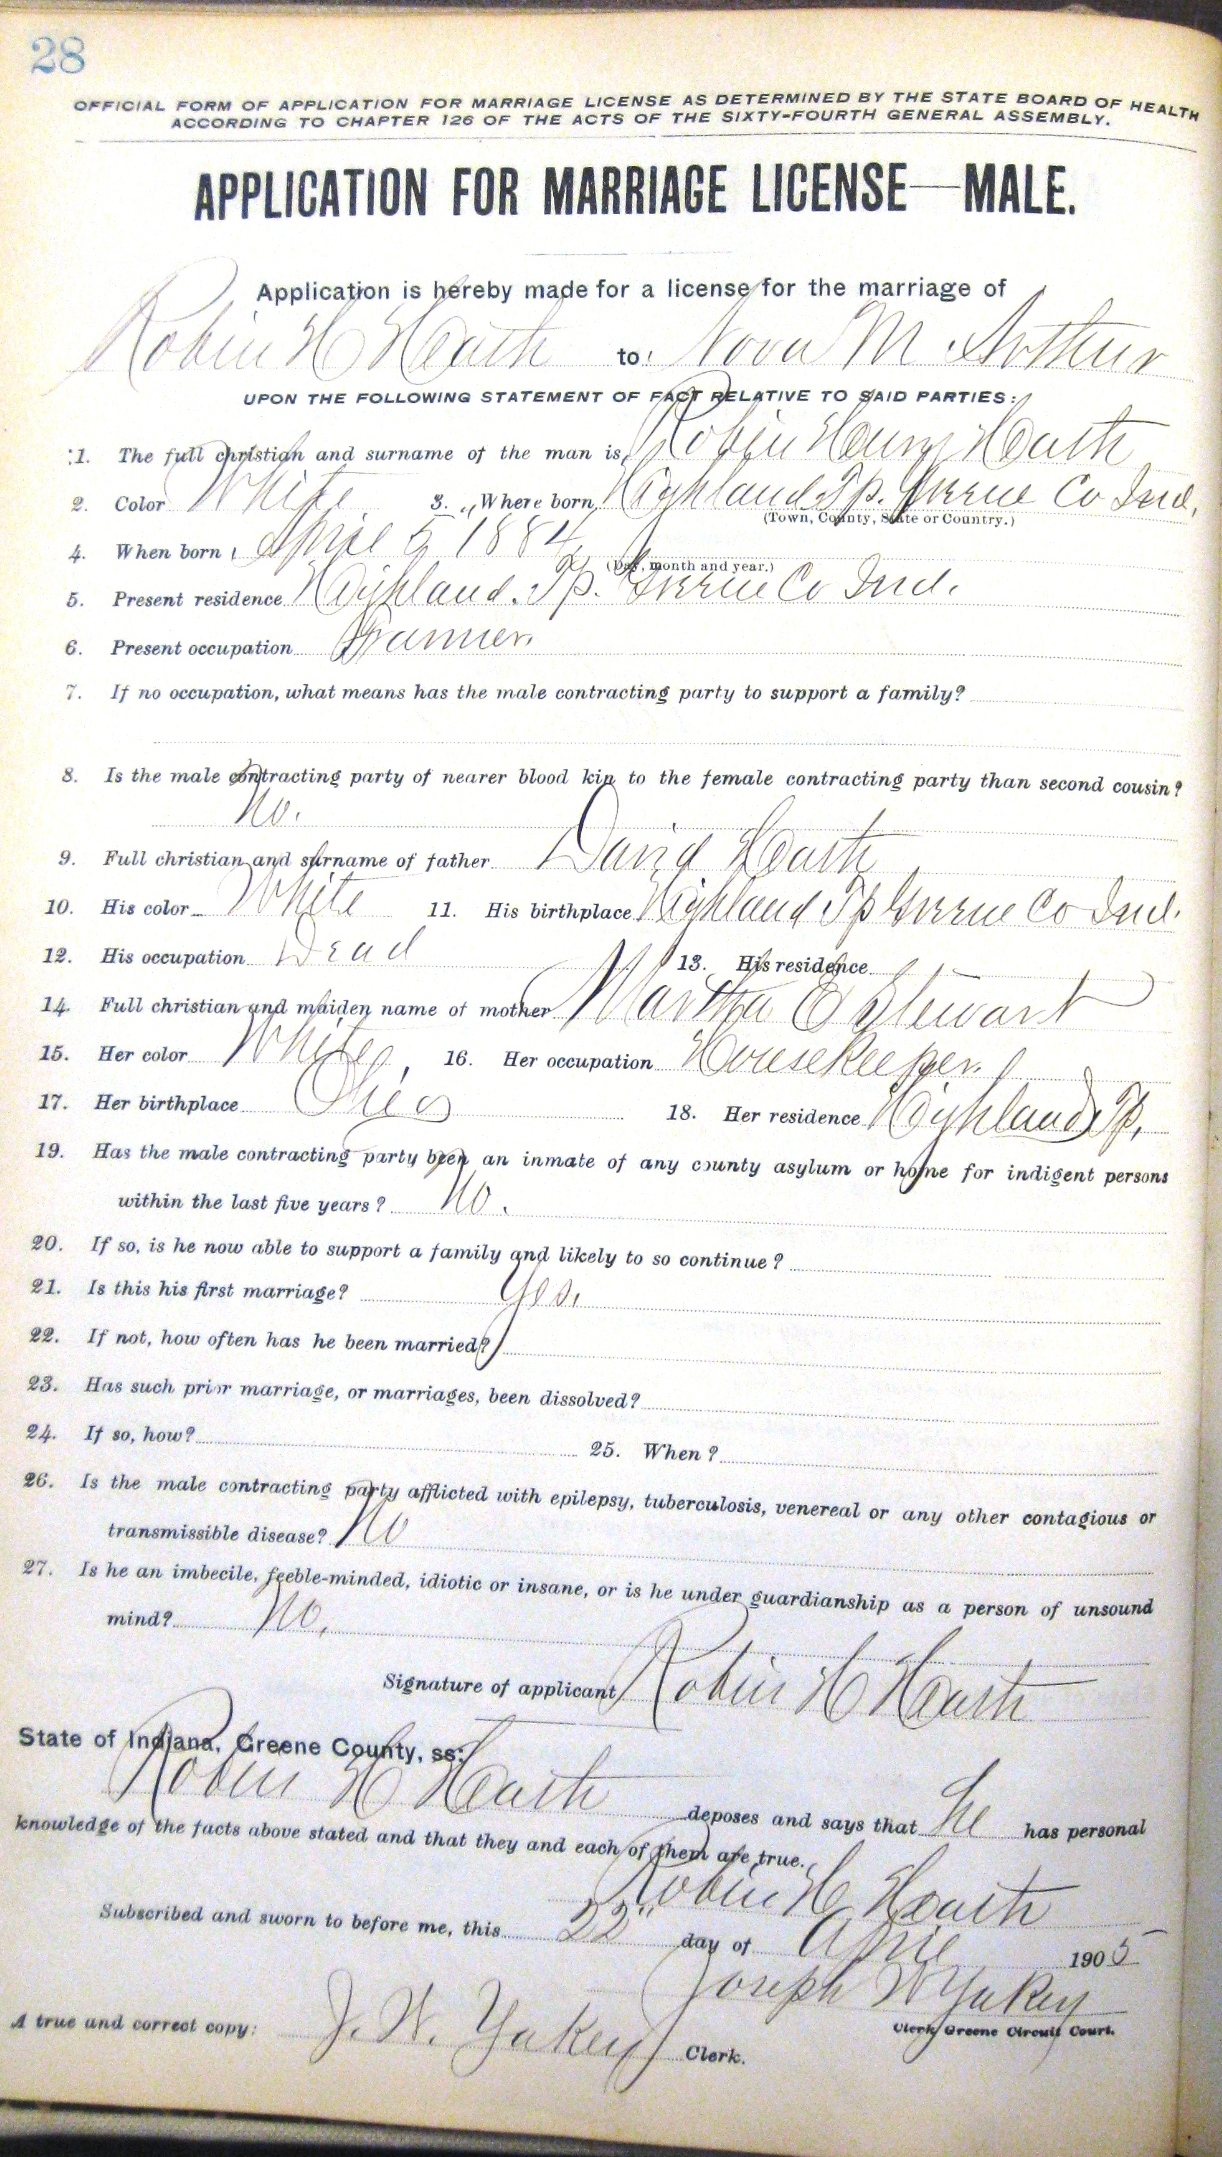 28
OFFICIAL FORM OF APPLICATION FOR MARRIAGE LICENSE AS DETERMINED BY THE STATE BOARD OF HEALTH
ACCORDING TO CHAPTER 126 OF THE ACTS OF THE SIXTY-FOURTH GENERAL ASSEMBLY.
APPLICATION FOR MARRIAGE LICENSE—MALE.
Application is hereby made for a license for the marriage of
Robin H Heath to Nova M Arthur
UPON THE FOLLOWING STATEMENT OF FACT RELATIVE TO SAID PARTIES:
1. The full christian and surname of the man is, Robin Henry Heath
2. Color White 3. Where born, Highland Tp. Greene Co Ind.
(Town, County, State or Country.)
4. When born April 5, 1884
(Day, month and year.)
5. Present residence Highland. Tp. Greene Co Ind.
6. Present occupation Farmer.
7. If no occupation, what means has the male contracting party to support a family?
8. Is the male contracting party of nearer blood kin to the female contracting party than second cousin?
No.
9. Full christian and surname of father David Heath
10. His color White 11. His birthplace Highland Tp Greene Co Ind.
12. His occupation Dead 13. His residence
14. Full christian and maiden name of mother Martha E Stewart
15. Her color White, 16. Her occupation Housekeeper.
17. Her birthplace Ohio 18. Her residence Highland Tp,
19. Has the male contracting party been an inmate of any county asylum or home for indigent persons
within the last five years? No.
20. If so, is he now able to support a family and likely to so continue?
21. Is this his first marriage? Yes.
22. If not, how often has he been married?
23. Has such prior marriage, or marriages, been dissolved?
24. If so, how? 25. When?
26. Is the male contracting party afflicted with epilepsy, tuberculosis, venereal or any other contagious or
transmissible disease? No
27. Is he an imbecile, feeble-minded, idiotic or insane, or is he under guardianship as a person of unsound
mind? No.
Signature of applicant Robin H Heath
State of Indiana, Greene County, ss:
Robin H Heath deposes and says that he has personal
knowledge of the facts above stated and that they and each of them are true.
Robin H Heath
Subscribed and sworn to before me, this 22" day of April 1905
Joseph W Yakey
Clerk Greene Circuit Court.
A true and correct copy: J. W. Yakey Clerk.